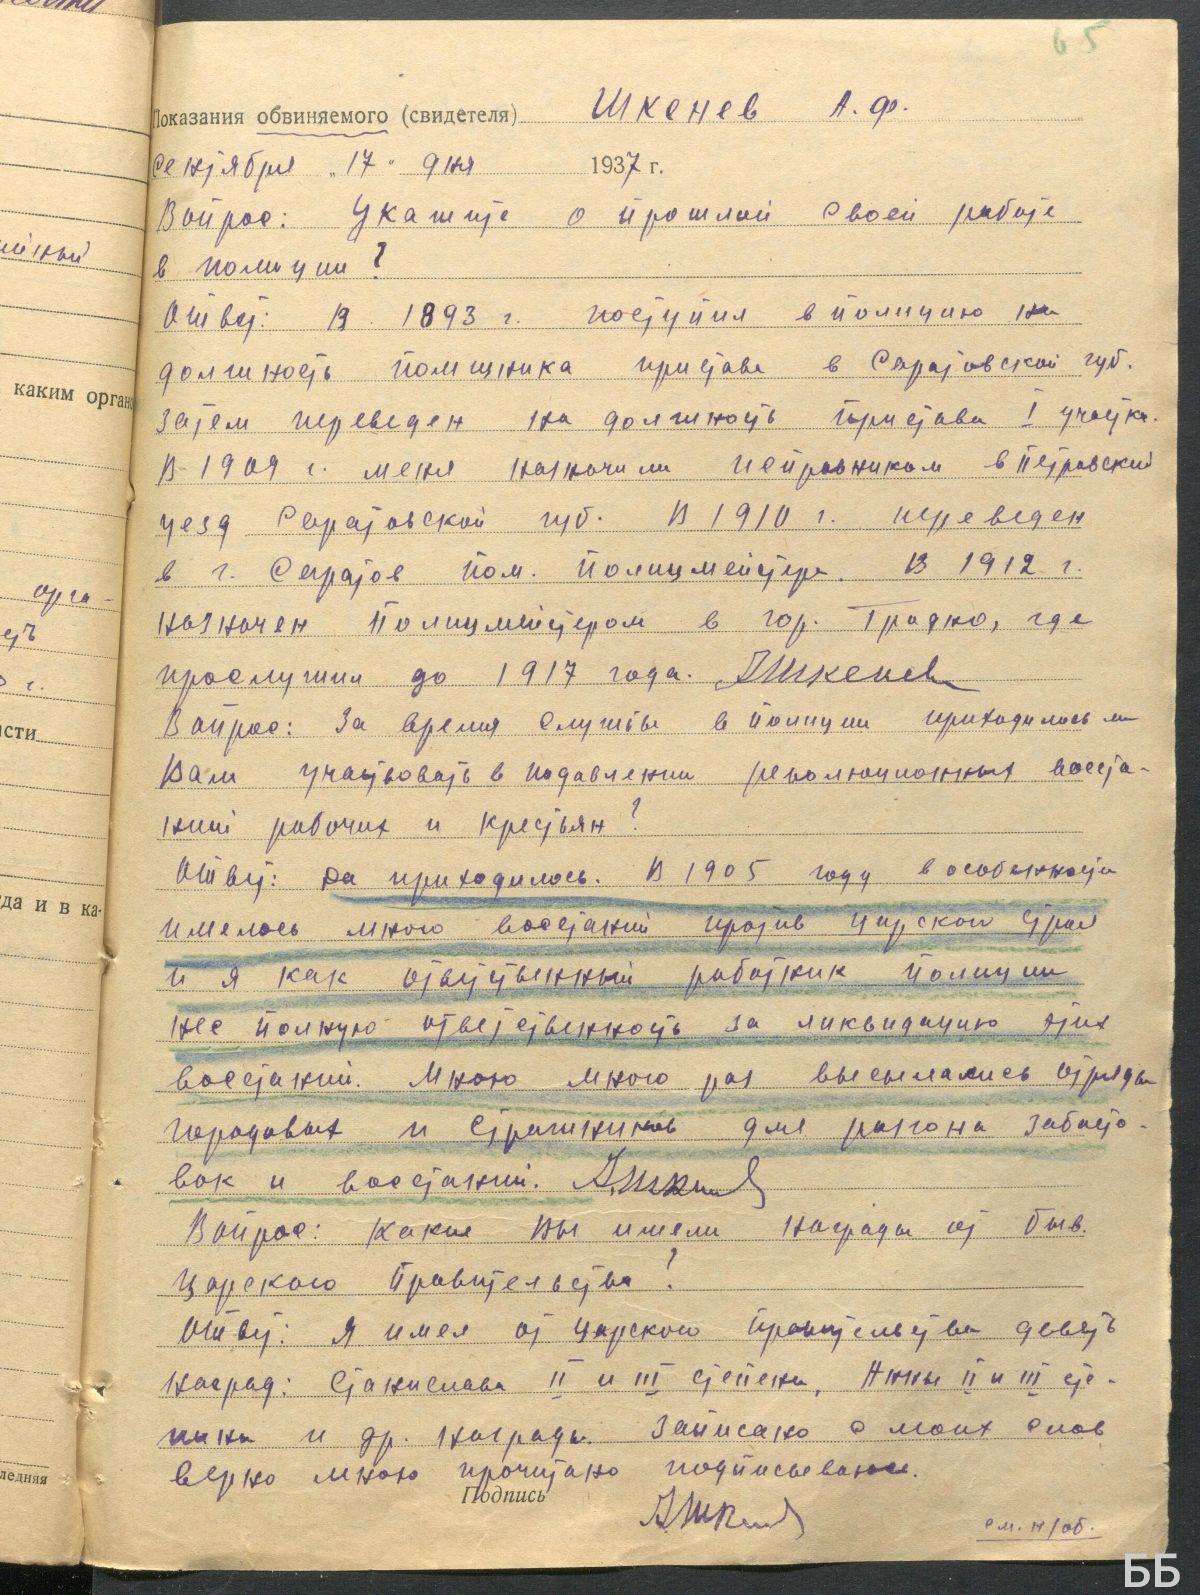 65
Показания обвиняемого (свидетеля) Шкенев А. Ф.
Сентября „17" дня 1937 г.
Вопрос: Укажите о прошлой своей работе
в полиции?
Ответ: В 1893 г. поступил в полицию на
должность помщника пристава в Саратовской губ.
затем переведен на должность пристава I участка.
В 1909 г. меня назначили исправником в Петровский
уезд Саратовской губ. В 1910 г. переведен
в г. Саратов пом. полицмейстера. В 1912 г.
назначен полицмейстером в гор. Гродно, где
прослужил до 1917 года. АШкенев
Вопрос: За время службы в полиции приходилось ли
Вам участвовать в подавлении революционных восста-
ний рабочих и крестьян?
Ответ: Да приходилось. В 1905 году в особенности
имелось много восстаний против царского строя
и я как ответственный работник полиции
нес полную ответственность за ликвидацию этих
восстаний. Мною много раз высылались отряды
городовых и стражников для разгона забасто-
вок и восстаний. АШкенев
Вопрос: Какие Вы имели награды от быв.
царского правительства?
Ответ: Я имел от царского правительства девять
наград: Станислава II и III степени, Анны II и III сте-
пени и др. награды. Записано с моих слов
верно мною прочитано подписываюсь.
Подпись АШкенев
см. н/об.
каким орган
орга-
г.
сти
да и в ка-
ледняя
ББ